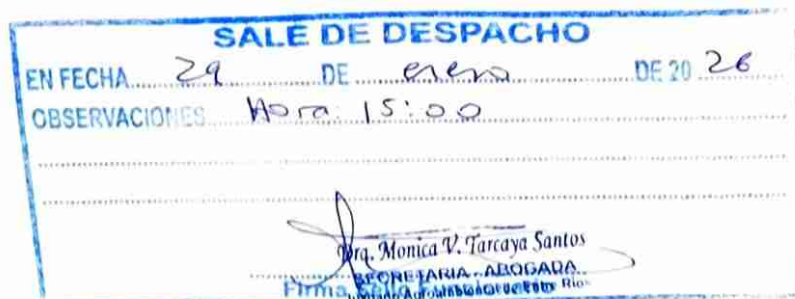 SALE DE DESPACHO
EN FECHA 29 DE enero DE 20 26
OBSERVACIONES Hora: 15:00
Dra. Monica V. Tarcaya Santos
SECRETARIA - ABOGADA
Firma Sello